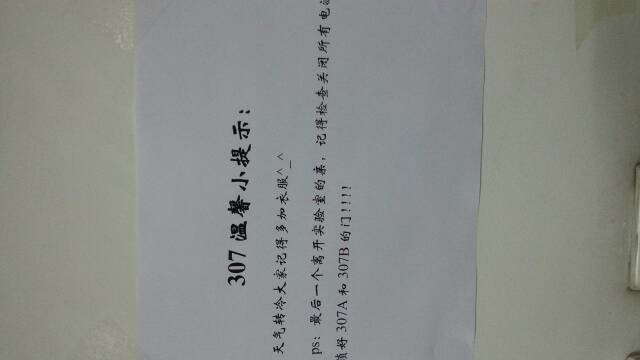 307 温馨小提示:
天气转冷大家记得多加衣服^_^
ps: 最后一个离开实验室的亲, 记得检查关闭所有电
锁好 307A 和 307B 的门!!!!